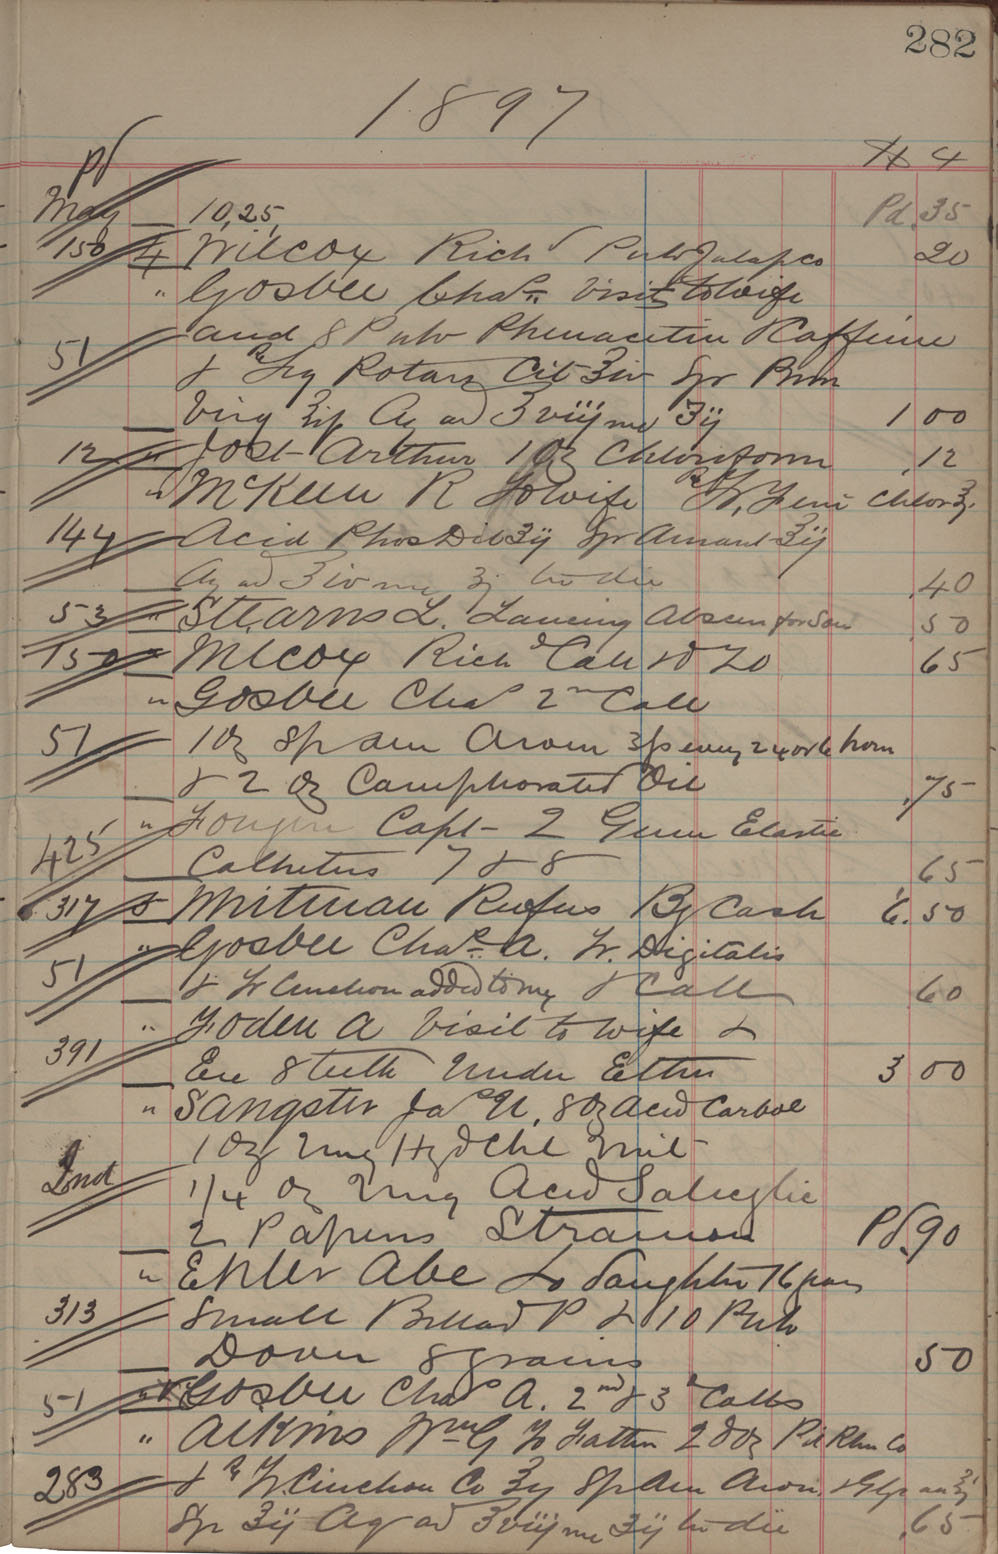 282
1897
pd
May 10,25, Pd. 35
150 4 Wilcox Richd Pulv Jalap co 20
" Gosbee Chas. Visit to wife
51 and 8 Pulv Phenacetin & Caffeine
& Rx Liq Potass Cit ʒiv Spr
Virg Aq ad ℥viij ʒij 1 00
12 " Jost Arthur 1 oz Chloroform .12
" McKeen R to wife Rx Tr. Ferri Chlor
144 Acid Phos Dil ʒij Spr Aurant ʒij
Aq ad ℥iv ʒj ter die .40
53 " Stearns L. Lancing Abscess for Son .50
150 " Wilcox Richd Call & to 65
" Gosbee Chas 2nd Call
51 1 oz Sp Am Arom every 2 or hours
& 2 oz Camphorated Oil .75
" Capt 2 Gum Elastic
425 Catheters 7 & 8 65
317 8 Whitman Rufus By Cash 6.50
" Gosbee Chas. A. Tr. Digitalis
51 & Tr Cinchon added to & Call 60
" Foden A Visit to wife &
391 Exe 8 teeth under Ether 3 00
" Sangster Jas N. 8 oz Acid Carbol
1 oz Ung Hyd Chl Mit
2nd 1/4 oz Ung Acid Salicylic
2 Papers Stramon Pd .90
" Ehler Abe to daughter 16 years
313 Small Bellad P & 10 Pulv
Dover 8 grains 50
51 " Gosbee Chas A. 2nd & 3d Calls
" Atkins Wm G to Father 2 doz Pil Rhu Co
283 & Rx Tr. Cinchon Co ʒij Sp Am Arom
Syr ʒij Aq ad ℥viij ʒij ter die .65